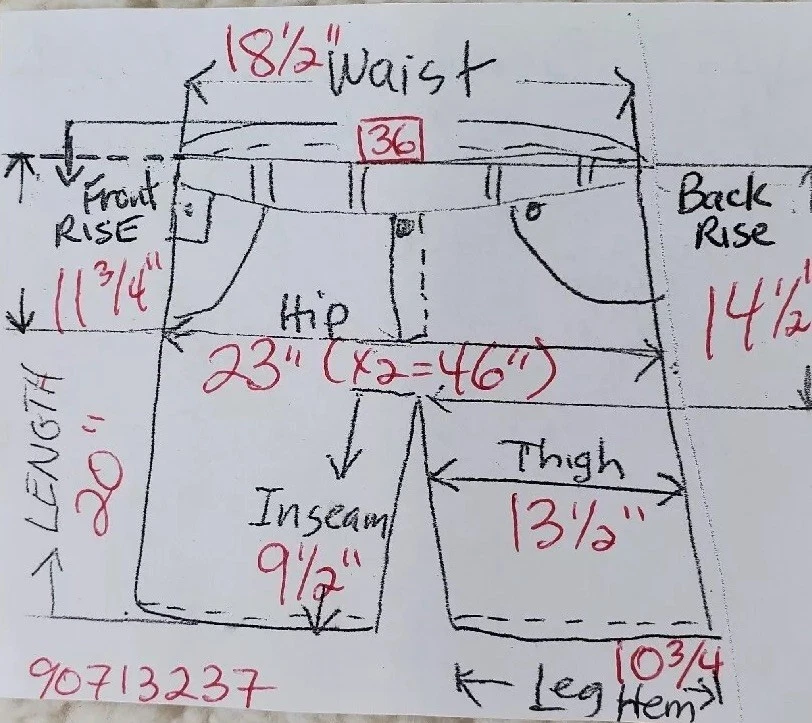 18 1/2" Waist
36
Front
RISE
11 3/4"
Back
RISE
14 1/2"
Hip
23" (x2=46")
LENGTH
20"
Thigh
13 1/2"
Inseam
9 1/2"
10 3/4
Leg Hem
90713237